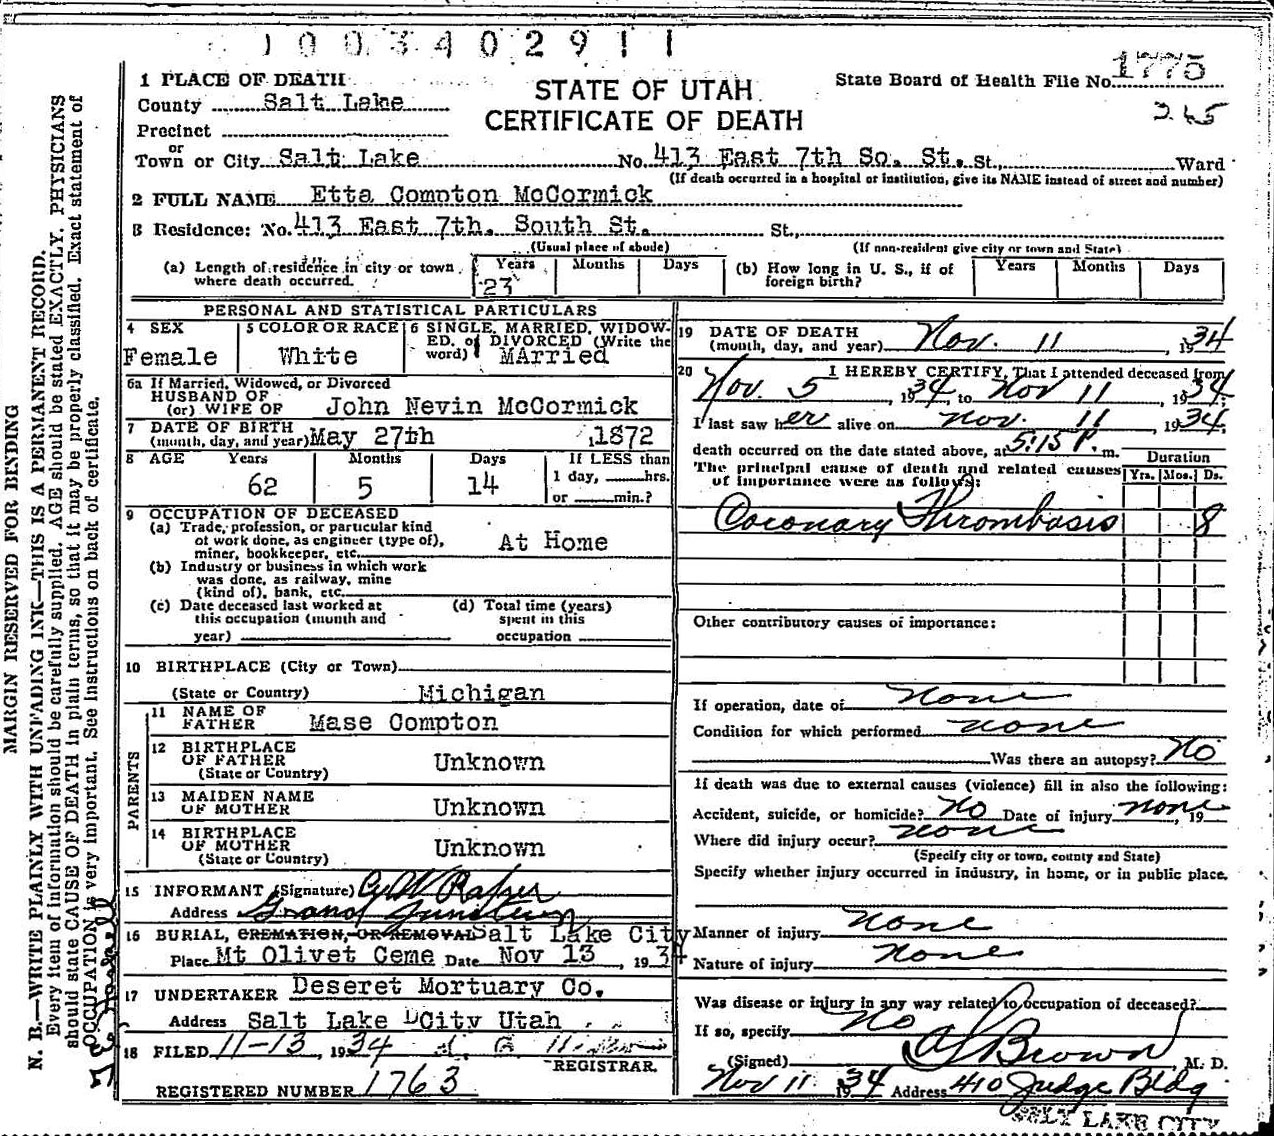 1003402911
1 PLACE OF DEATH
County Salt Lake
Precinct
or
Town or City Salt Lake No. 413 East 7th So. St. St., Ward
STATE OF UTAH
CERTIFICATE OF DEATH
State Board of Health File No. 1775
245
(If death occurred in a hospital or institution, give its NAME instead of street and number)
2 FULL NAME Etta Compton McCormick
3 Residence: No. 413 East 7th. South St. St.,
(Usual place of abode) (If non-resident give city or town and State)
(a) Length of residence in city or town where death occurred. Years 23 Months Days
(b) How long in U. S., if of foreign birth? Years Months Days
PERSONAL AND STATISTICAL PARTICULARS
4 SEX Female
5 COLOR OR RACE White
6 SINGLE, MARRIED, WIDOW-
ED, or DIVORCED (Write the
word) MArried
6a If Married, Widowed, or Divorced
HUSBAND OF
(or) WIFE OF John Nevin McCormick
7 DATE OF BIRTH
(month, day, and year) May 27th , 1872
8 AGE Years 62 Months 5 Days 14 If LESS than
1 day, hrs.
or min.?
9 OCCUPATION OF DECEASED
(a) Trade, profession, or particular kind
of work done, as engineer (type of),
miner, bookkeeper, etc. At Home
(b) Industry or business in which work
was done, as railway, mine
(kind of), bank, etc.
(c) Date deceased last worked at
this occupation (month and
year)
(d) Total time (years)
spent in this
occupation
10 BIRTHPLACE (City or Town)
(State or Country) Michigan
PARENTS
11 NAME OF
FATHER Mase Compton
12 BIRTHPLACE
OF FATHER
(State or Country) Unknown
13 MAIDEN NAME
OF MOTHER Unknown
14 BIRTHPLACE
OF MOTHER
(State or Country) Unknown
15 INFORMANT (Signature)
Address Grand Junction
16 BURIAL, CREMATION, OR REMOVAL Salt Lake City
Place Mt Olivet Ceme Date Nov 13 , 1934
17 UNDERTAKER Deseret Mortuary Co.
Address Salt Lake City Utah
18 FILED 11-13 , 1934
REGISTRAR.
REGISTERED NUMBER 1763
19 DATE OF DEATH
(month, day, and year) Nov. 11 , 1934
20 I HEREBY CERTIFY, That I attended deceased from
Nov. 5 , 1934, to Nov 11 , 1934,
I last saw her alive on Nov. 11 , 1934,
death occurred on the date stated above, at 5:15 P. m.
The principal cause of death and related causes
of importance were as follows:
Duration
Yrs. Mos. Ds.
Coronary Thrombosis 8
Other contributory causes of importance:
If operation, date of none
Condition for which performed none
Was there an autopsy? No
If death was due to external causes (violence) fill in also the following:
Accident, suicide, or homicide? No Date of injury none , 19
Where did injury occur? none
(Specify city or town, county and State)
Specify whether injury occurred in industry, in home, or in public place.
Manner of injury none
Nature of injury None
Was disease or injury in any way related to occupation of deceased?
If so, specify No
(Signed) Brown M. D.
Nov 11 1934 Address 410 Judge Bldg
SALT LAKE CITY
MARGIN RESERVED FOR BINDING
N. B.—WRITE PLAINLY WITH UNFADING INK—THIS IS A PERMANENT RECORD.
Every item of information should be carefully supplied. AGE should be stated EXACTLY. PHYSICIANS
should state CAUSE OF DEATH in plain terms, so that it may be properly classified. Exact statement of
OCCUPATION is very important. See instructions on back of certificate.